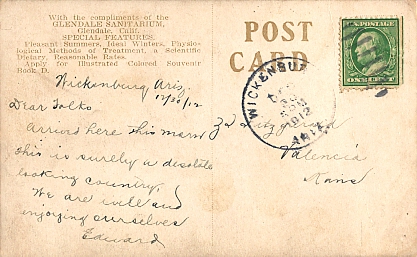 With the compliments of the
GLENDALE SANITARIUM,
Glendale, Calif.
SPECIAL FEATURES.
Pleasant Summers, Ideal Winters, Physio-
logical Methods of Treatment, a Scientific
Dietary, Reasonable Rates.
Apply for Illustrated Colored Souvenir
Book D.
POST
CARD
ONE CENT
WICKENBURG
1912
ARIZ.
Wickenburg Ariz
12/30/12
Dear Folks.
Arrived here this morn
this is surelly a desolate
looking country.
We are well and
enjoying ourselves
Edward
Fitzgerald
Valencia
Kans